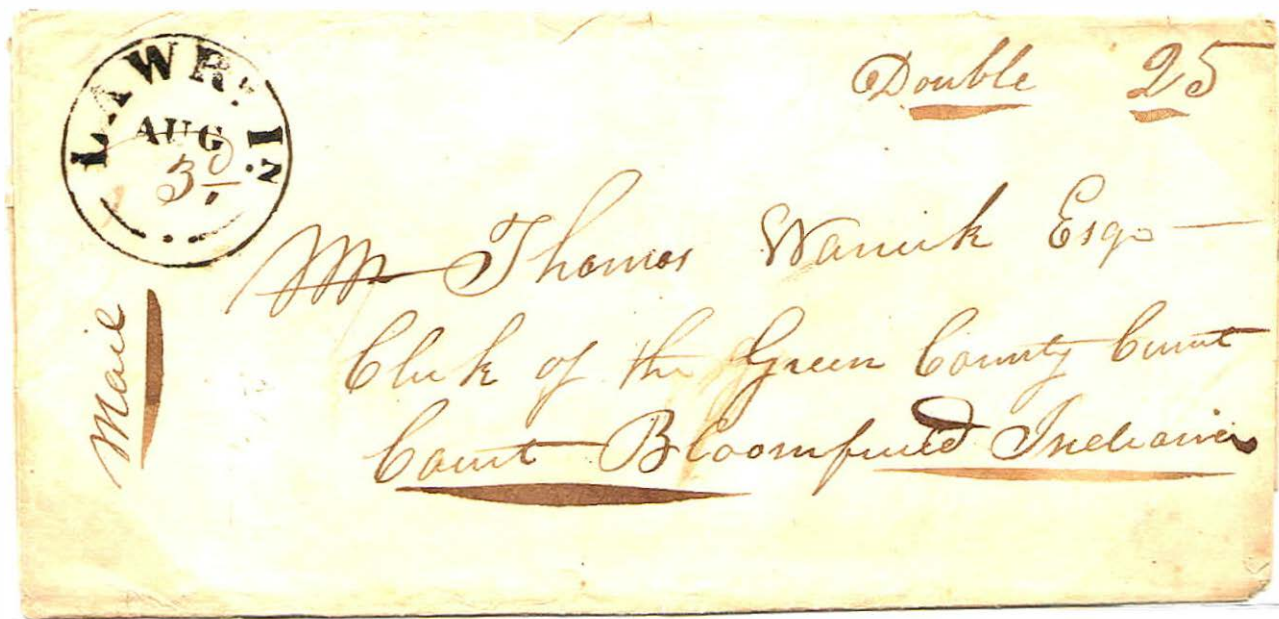 LAWRG. IN.
AUG
30
Double 25
Mr Thomas Warrick Esqr
Clerk of the Green County Court
Court Bloomfield Indiana
Mail